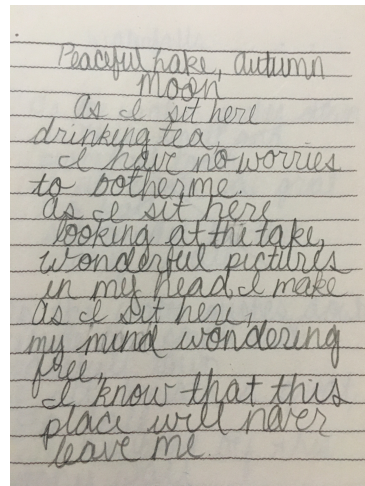 Peaceful Lake, autumn
moon
as I sit here
drinking tea,
I have no worries
to bother me.
as I sit here
looking at the lake,
wonderful pictures
in my head I make
as I sit here,
my mind wondering
free,
I know that this
place will never
leave me.